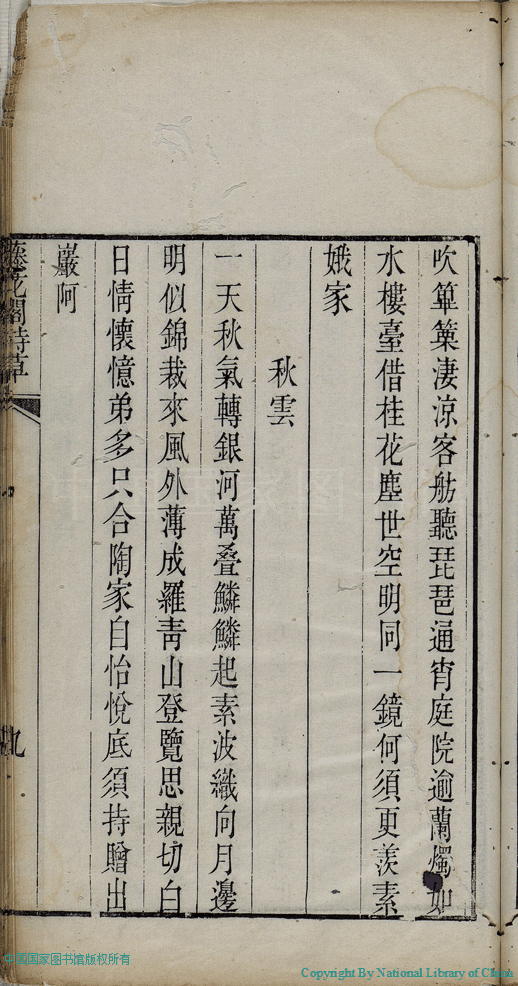 吹篳篥淒涼客舫聽琵琶通宵庭院逾蘭燭如
水樓臺借桂花塵世空明同一鏡何須更羨素
娥家
秋雲
一天秋氣轉銀河萬叠鱗鱗起素波織向月邊
明似錦裁來風外薄成羅靑山登覽思親切白
日情懷憶弟多只合陶家自怡悅底須持贈出
巖阿
藤花閣詩草
九
中国国家图书馆版权所有
Copyright By National Library of China